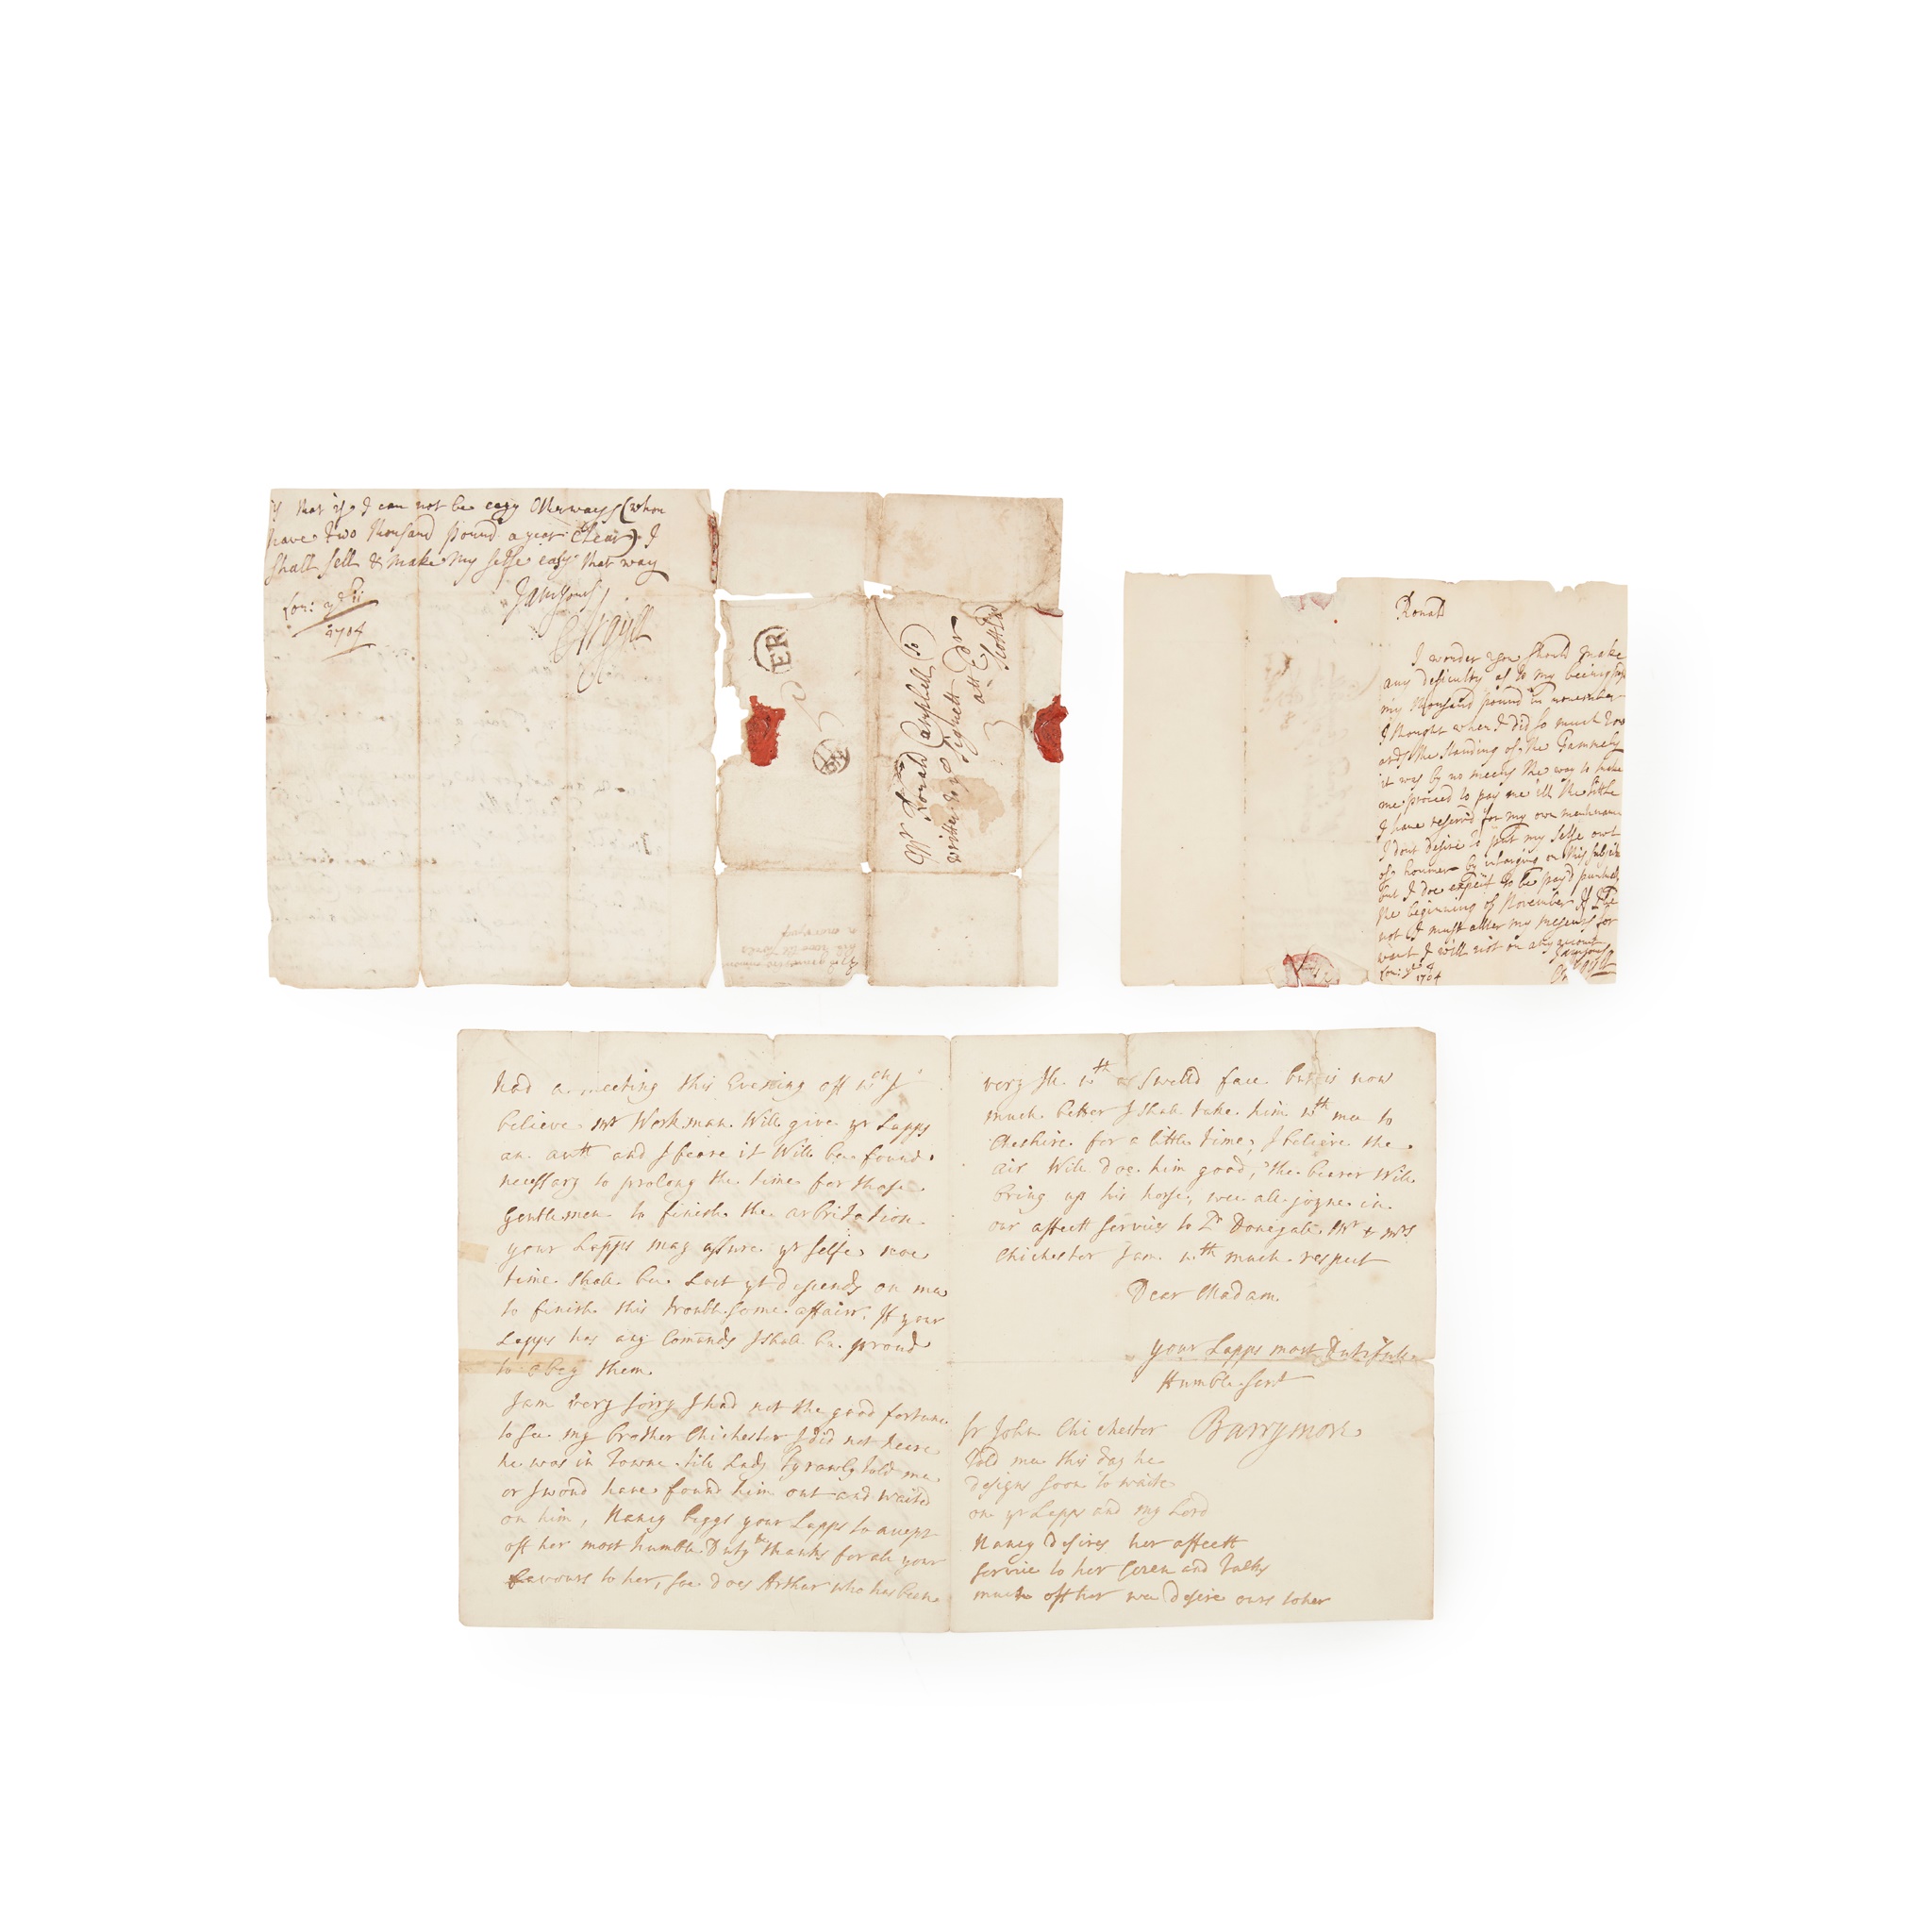 that if I can not be easy Otherways (when
have two thousand pound a year Clear) I
shall sell & make my selfe easy that way
I am yours
Argyll
Lon: ye 11
1704
ER
Mr Ronald Campbell
writter to ye Signett
att Edr
Scotland
Ronald
I wonder you should make
any dificulty as to my being
my thousand pound in november
I thought when I did so much
ards the standing of the Fammely
it was by no means the way to
me proceed to pay me ill the little
I have reserv'd for my own
I dont desire to putt my selfe out
of houmer by inlarging on this subject
but I doe expect to be payd
the beginning of November if
not I must alter my mesurs for
want I will not on any
I am yours
Argyll
Lon: ye 4
1704
had a meeting this Evening off wch I
believe Mr Workman Will give yr Lapps
an and I feare it Will bee found
necessary to prolong the time for those
Gentlemen to finish the arbitration
your Lapps may assure yr selfe noe
time shall bee Lost yt depends on mee
to finish this troublesome affair. If your
Lapps has any Comands I shall bee proud
to obey them
I am very sorry I had not the good fortune
to see my brother Chichester I did not heere
he was in Towne till Lady Tyrawly told me
or I woud have found him out and waited
on him, Nancy beggs your Lapps to accept
off her most humble Duty thanks for all your
favours to her, soe does Arthur who has been
very Ill wth a Swelld face but is now
much better I shall take him wth mee to
Cheshire for a little time, I believe the
air Will doe him good, the bearer Will
bring up his horse, wee all joyne in
our affectt service to Ld Donegall Mr & Mrs
Chichester I am wth much respect
Dear Madam
your Lapps most Dutifull
Humble Servt
Barrymore
Sr John Chichester
Told mee this day he
designs soon to waite
on yr Lapps and my Lord
Nancy desires her affectt
service to her Cozen and Talks
much off her wee desire ours to her